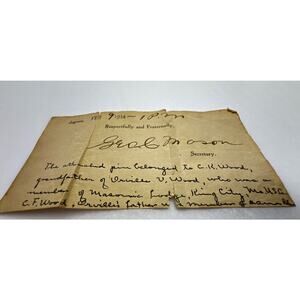 1 P.M.
Respectfully and Fraternally,
Geo C Mason
Secretary.
The attached pin belonged to C. F. Wood,
grandfather of Orville V. Wood, who was a
member of Masonic Lodge, King City, Mo. U.S.
C. F. Wood, Orville's father was member of same